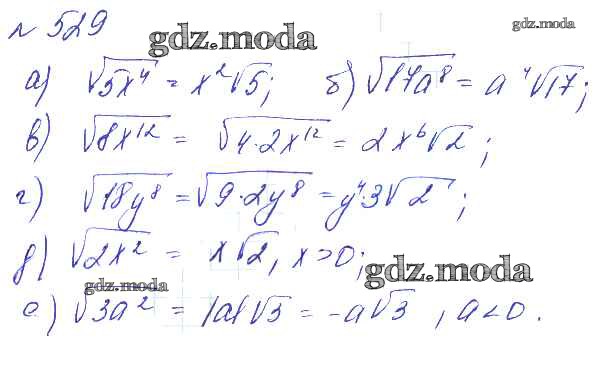 № 529
gdz.moda gdz.moda
а) √5x⁴ = x²√5; б) √17a⁸ = a⁴√17;
в) √8x¹² = √4·2x¹² = 2x⁶√2;
г) √18y⁸ = √9·2y⁸ = y⁴3√2;
д) √2x² = x√2, x>0;
gdz.moda gdz.moda
е) √3a² = |a|√3 = -a√3, a<0.